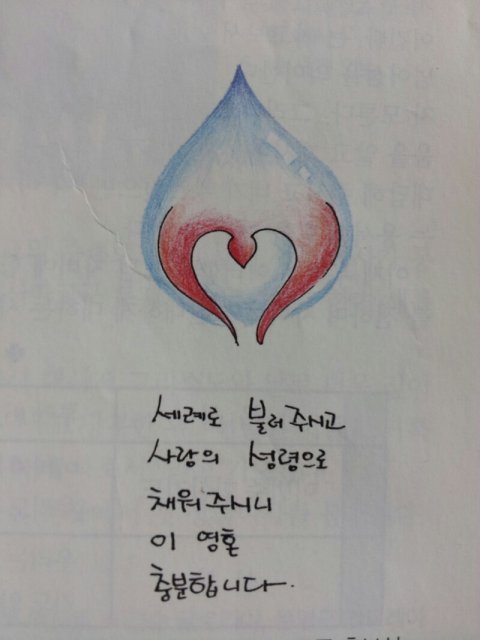 세례로 불러 주시고
사랑의 성령으로
채워 주시니
이 영혼
충분합니다.